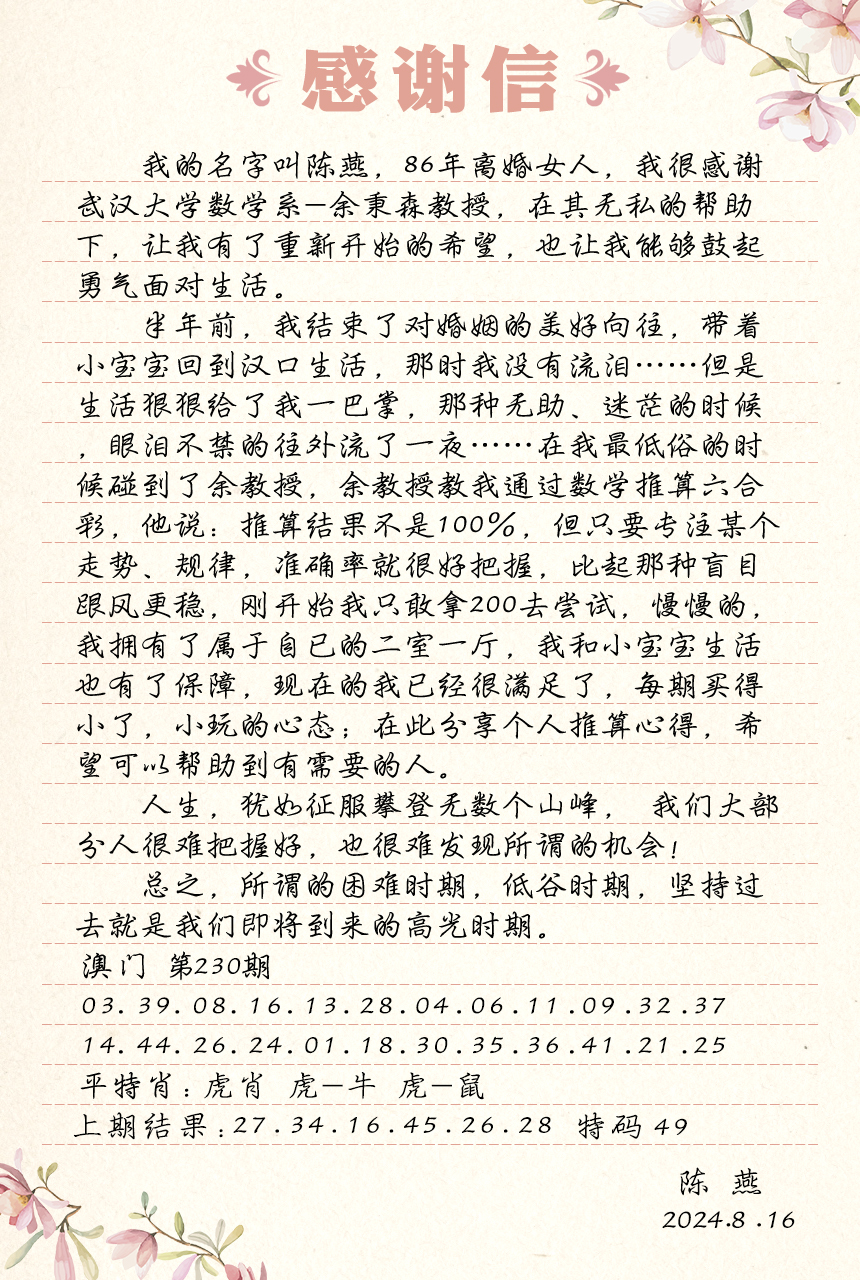 感谢信
我的名字叫陈燕，86年离婚女人，我很感谢
武汉大学数学系—余秉森教授，在其无私的帮助
下，让我有了重新开始的希望，也让我能够鼓起
勇气面对生活。
半年前，我结束了对婚姻的美好向往，带着
小宝宝回到汉口生活，那时我没有流泪……但是
生活狠狠给了我一巴掌，那种无助、迷茫的时候
，眼泪不禁的往外流了一夜……在我最低俗的时
候碰到了余教授，余教授教我通过数学推算六合
彩，他说：推算结果不是100%，但只要专注某个
走势、规律，准确率就很好把握，比起那种盲目
跟风更稳，刚开始我只敢拿200去尝试，慢慢的，
我拥有了属于自已的二室一厅，我和小宝宝生活
也有了保障，现在的我已经很满足了，每期买得
小了，小玩的心态；在此分享个人推算心得，希
望可以帮助到有需要的人。
人生，犹如征服攀登无数个山峰， 我们大部
分人很难把握好，也很难发现所谓的机会！
总之，所谓的困难时期，低谷时期，坚持过
去就是我们即将到来的高光时期。
澳门 第230期
03.39.08.16.13.28.04.06.11.09.32.37
14.44.26.24.01.18.30.35.36.41.21.25
平特肖：虎肖 虎—牛 虎—鼠
上期结果：27.34.16.45.26.28 特码 49
陈 燕
2024.8.16